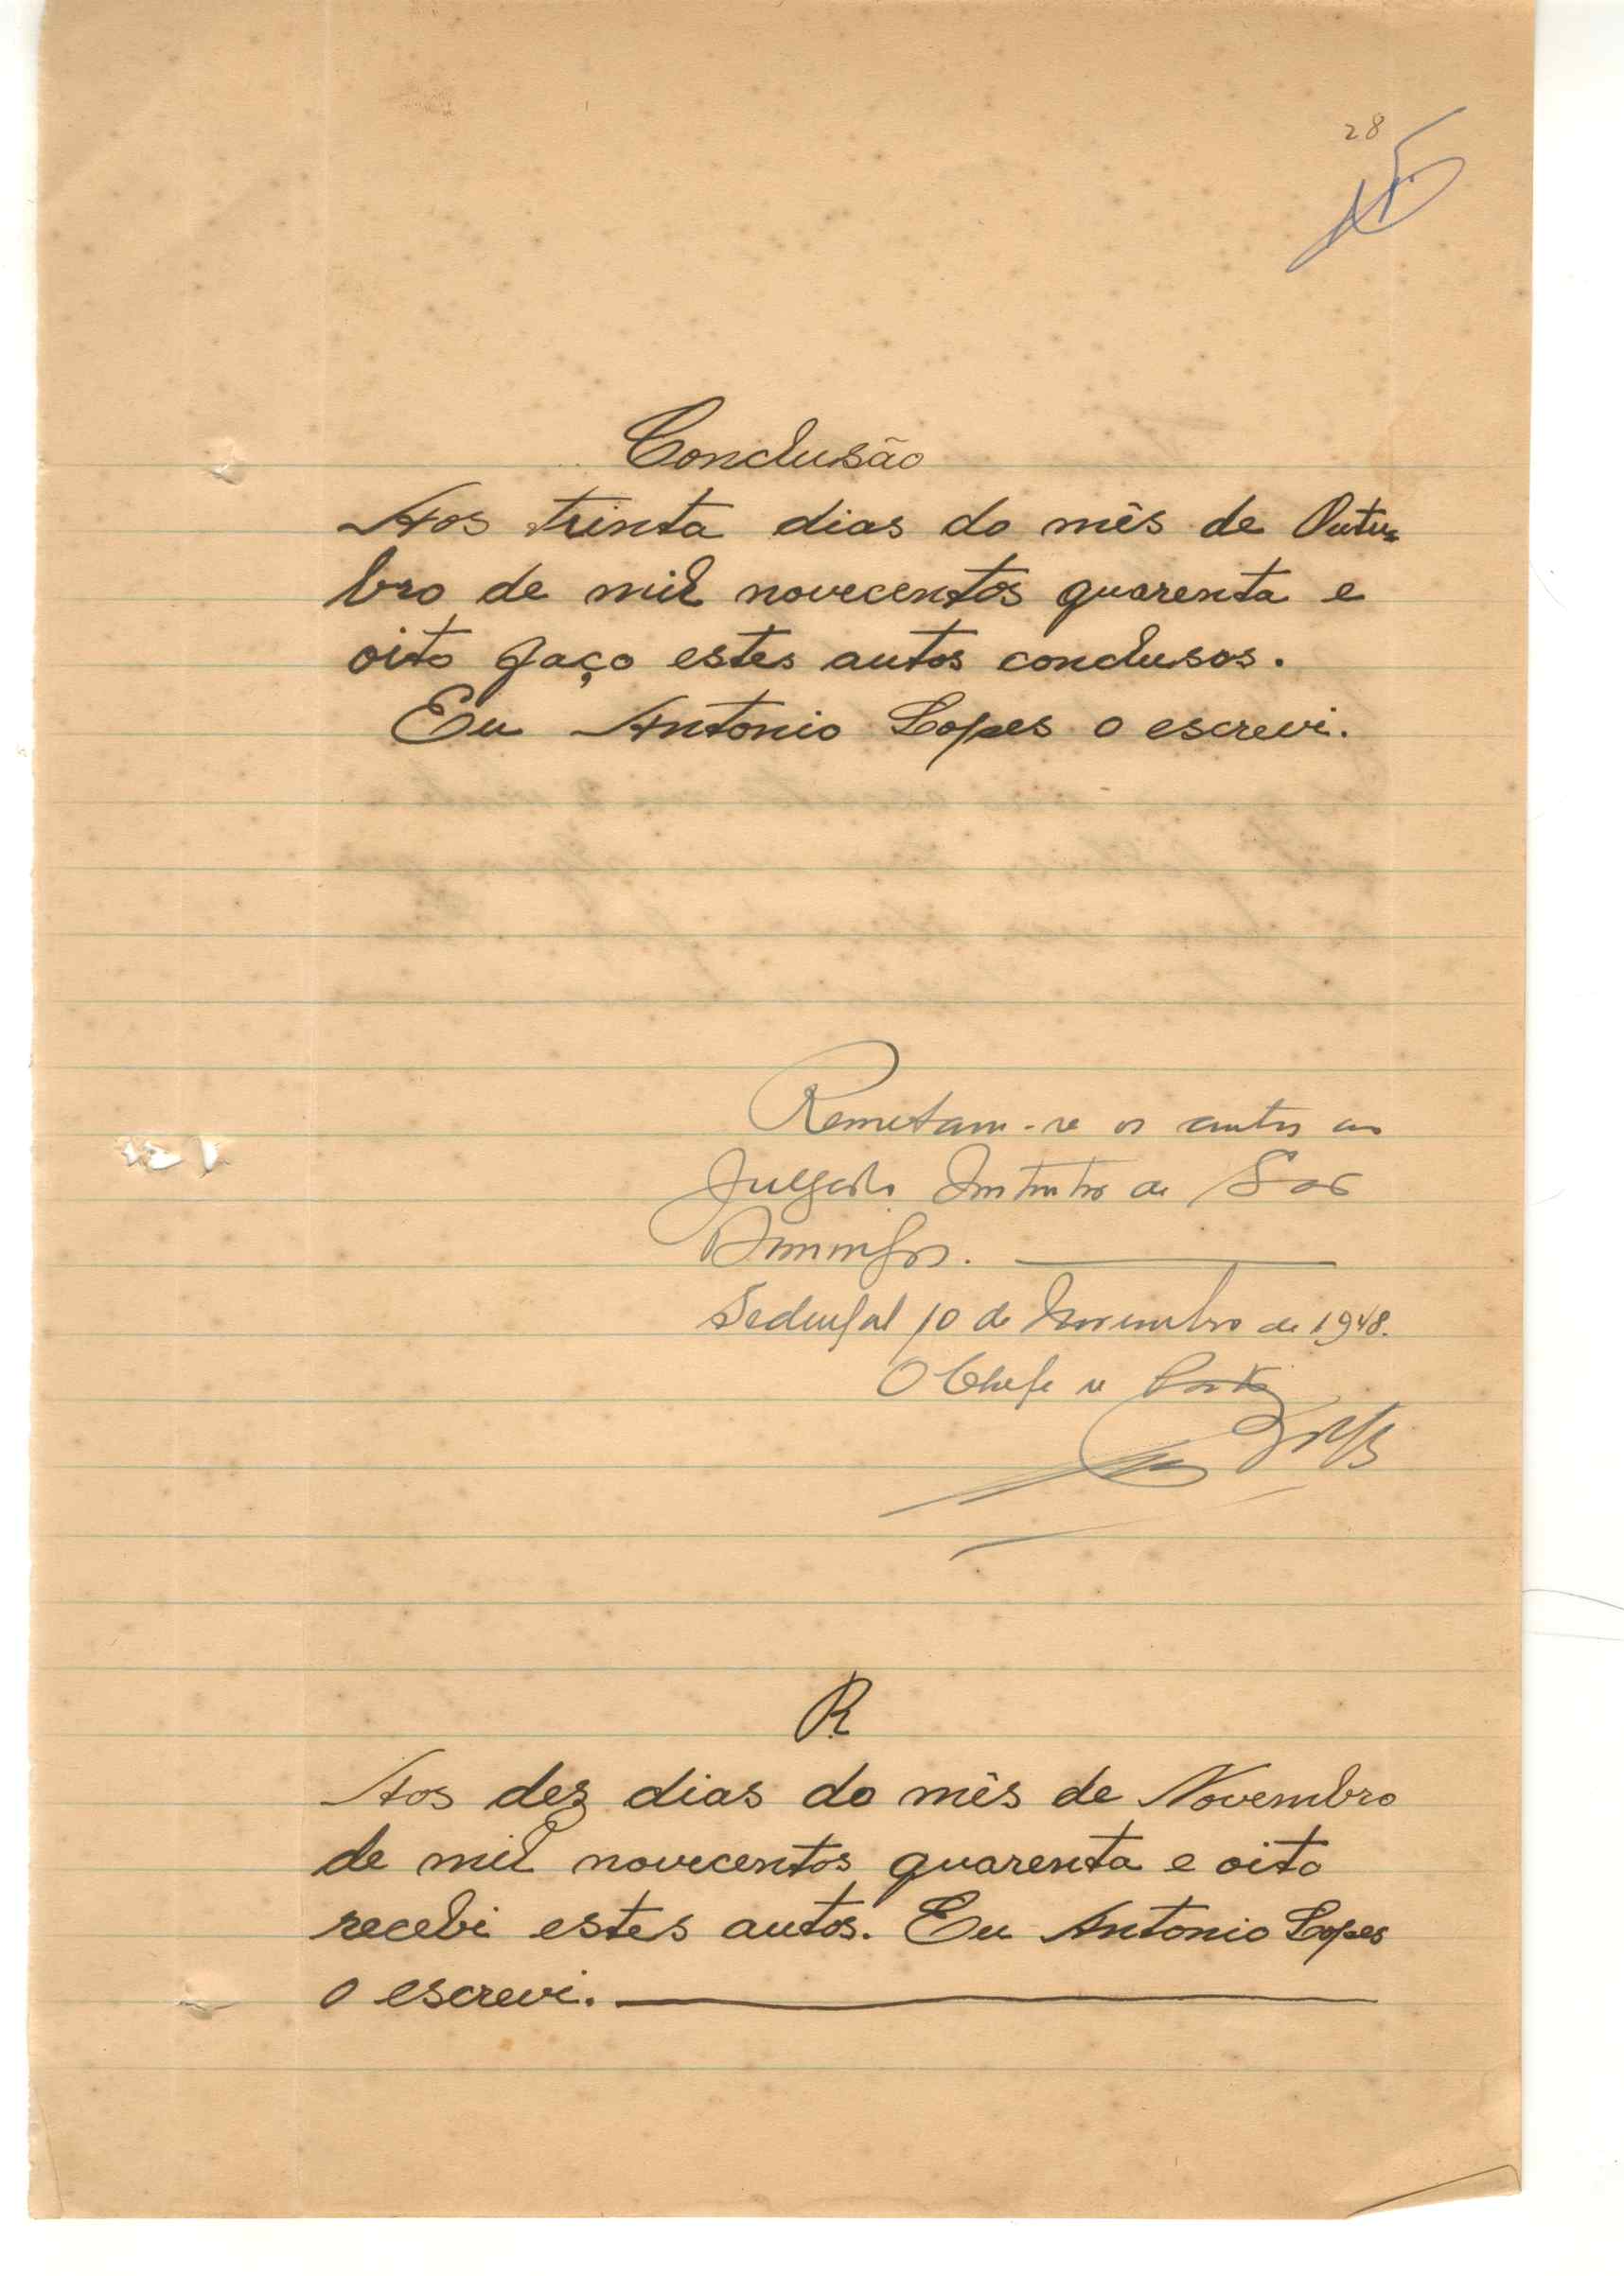 28
Conclusão
Aos trinta dias do mês de Outu=
bro de mil novecentos quarenta e
oito faço estes autos conclusos.
Eu Antonio Lopes o escrevi.
Remetam-se os autos ao
Julgado Instrutor de São
Domingos.
10 de Novembro de 1948.
O Chefe de Posto
R
Aos dez dias do mês de Novembro
de mil novecentos quarenta e oito
recebi estes autos. Eu Antonio Lopes
o escrevi.